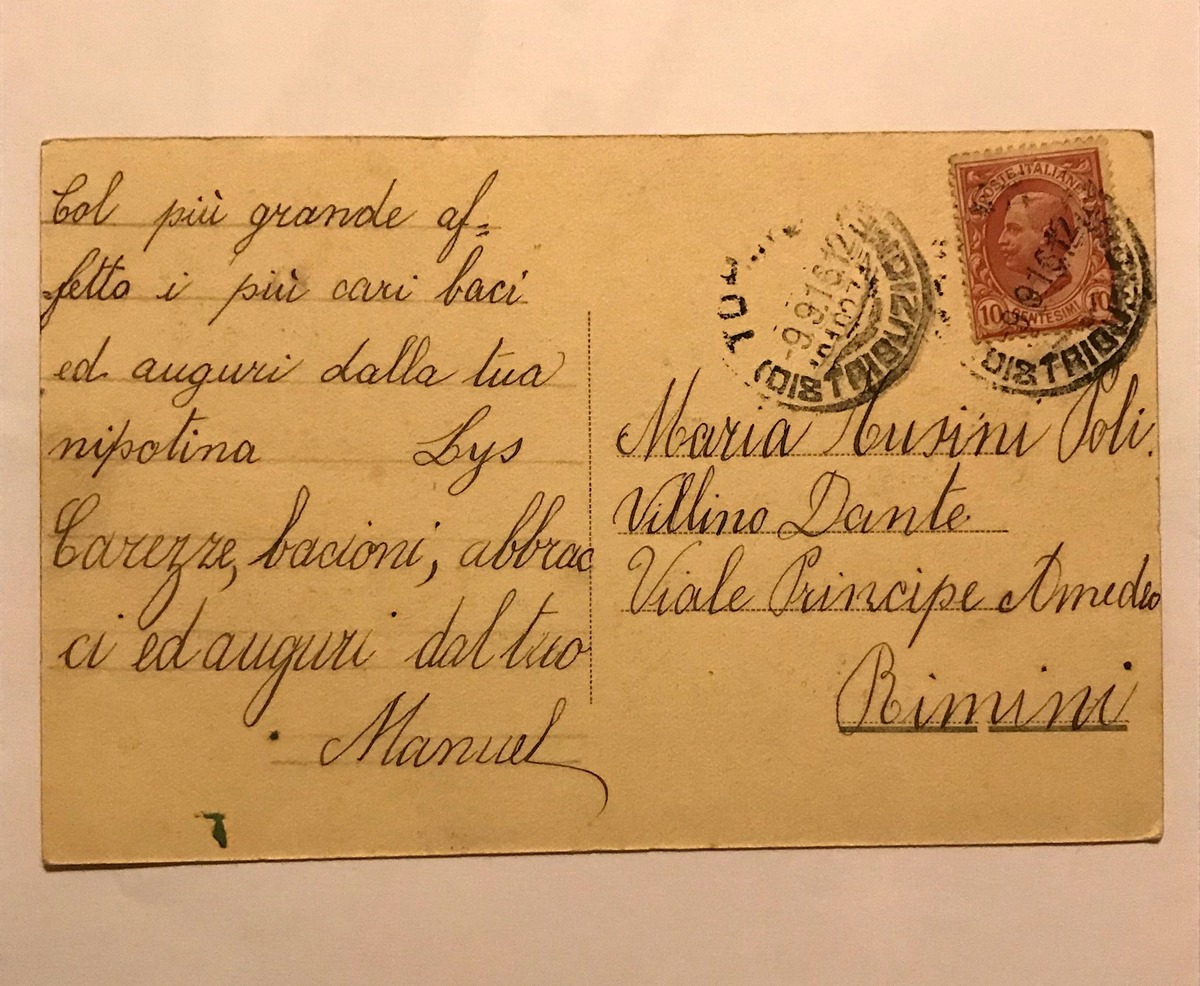 Col più grande af=
=fetto i più cari baci
ed auguri dalla tua
nipotina Lys
Carezze, bacioni, abbrac
ci ed auguri dal tuo
Manuel
POSTE ITALIANE
10 CENTESIMI 10
-9.9.16.12
(DISTRIBUZIONE
9.16.12
DISTRIBUZ
Maria Musini Poli.
Villino Dante
Viale Principe Amedeo
Rimini